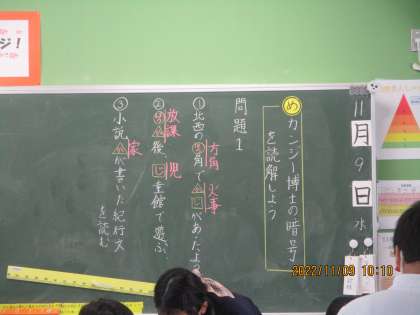 ジ!
11月9日水
め カンジー博士の暗号
を読解しよう
問題1
方角 火事
①北西の 角で じがあったよう
放課 児
② 後、じ童館で遊ぶ
家
③小説 が書いた紀行文
を読む
2022/11/09 10:10